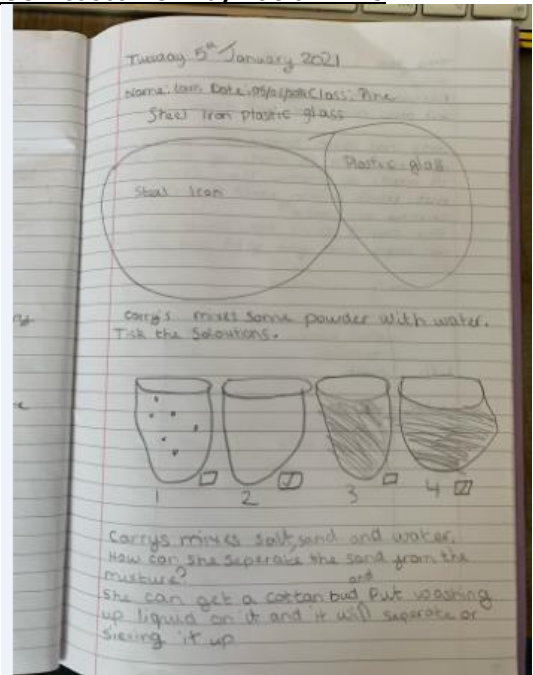 Tuesday 5th January 2021
Name: Date: Class: Pine
Steel Iron plastic glass
Plastic glass
Steel Iron
Carry's mixes some powder with water.
Tick the Soloutions.
1 2 3 4
Carrys mixes salt, sand and water.
How can she seperate the sand from the
mixture?
and
She can get a cottan bud put washing
up liquid on it and it will seperate or
sieving it up